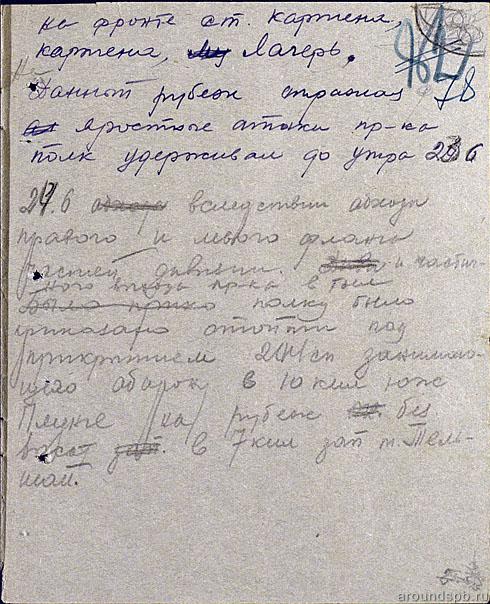 на фронте ст. Картена,
Картена, Лагерь,
78
Данный рубеж отражая
яростные атаки пр-ка
полк удерживал до утра 23 6
24.6 вследствии обхода
правого и левого фланга
частей дивизии. и частич-
ного выхода пр-ка в тыл
было полку было
приказано отойти под
прикрытием 204 сп занимаю-
щего оборону в 10 клм юж
Плунге на рубеж без
высот в 7 клм зап м. Тель-
шай.
aroundspb.ru